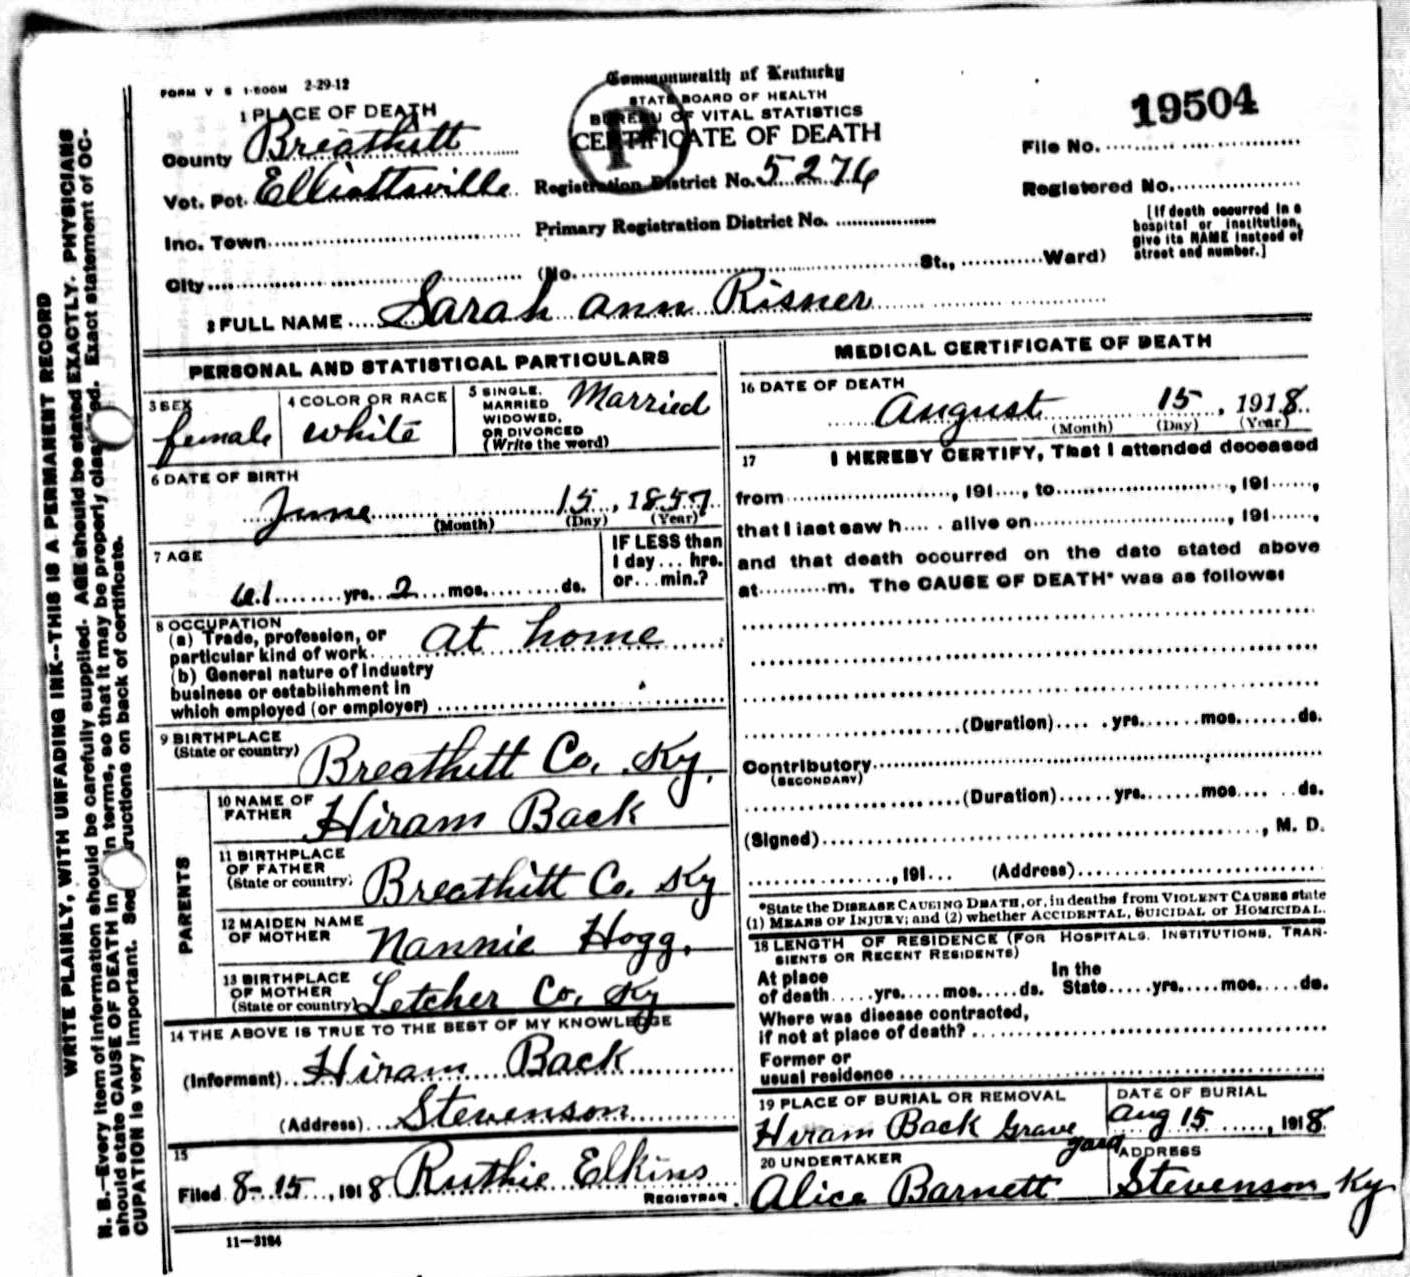 FORM V S 1-600M 2-29-12
Commonwealth of Kentucky
STATE BOARD OF HEALTH
BUREAU OF VITAL STATISTICS
CERTIFICATE OF DEATH
P
19504
1 PLACE OF DEATH
County Breathitt
Vot. Pct. Elliottsville
Registration District No. 5276
File No.
Registered No.
Inc. Town
Primary Registration District No.
[If death occurred in a
hospital or institution,
give its NAME instead of
street and number.]
City (No. St., Ward)
2 FULL NAME Sarah ann Risner
PERSONAL AND STATISTICAL PARTICULARS
3 SEX
female
4 COLOR OR RACE
white
5 SINGLE,
MARRIED
WIDOWED,
OR DIVORCED
(Write the word)
Married
6 DATE OF BIRTH
June 15, 1857
(Month) (Day) (Year)
7 AGE
61 yrs. 2 mos. ds.
IF LESS than
1 day... hrs.
or... min.?
8 OCCUPATION
(a) Trade, profession, or
particular kind of work at home
(b) General nature of industry
business or establishment in
which employed (or employer)
9 BIRTHPLACE
(State or country)
Breathitt Co, Ky.
PARENTS
10 NAME OF
FATHER
Hiram Back
11 BIRTHPLACE
OF FATHER
(State or country)
Breathitt Co, Ky
12 MAIDEN NAME
OF MOTHER
Nannie Hogg.
13 BIRTHPLACE
OF MOTHER
(State or country)
Letcher Co, Ky
14 THE ABOVE IS TRUE TO THE BEST OF MY KNOWLEDGE
(Informant) Hiram Back
(Address) Stevenson
15
Filed 8-15, 1918 Ruthie Elkins
REGISTRAR
11—3184
MEDICAL CERTIFICATE OF DEATH
16 DATE OF DEATH
August 15, 1918
(Month) (Day) (Year)
17 I HEREBY CERTIFY, That I attended deceased
from , 191 , to , 191 ,
that I last saw h alive on , 191 ,
and that death occurred on the date stated above
at m. The CAUSE OF DEATH* was as follows:
(Duration) yrs. mos. ds.
Contributory
(SECONDARY)
(Duration) yrs. mos. ds.
(Signed) , M. D.
, 191 (Address)
*State the DISEASE CAUSING DEATH, or, in deaths from VIOLENT CAUSES state
(1) MEANS OF INJURY; and (2) whether ACCIDENTAL, SUICIDAL or HOMICIDAL.
18 LENGTH OF RESIDENCE (FOR HOSPITALS, INSTITUTIONS, TRAN-
SIENTS OR RECENT RESIDENTS)
At place
of death yrs. mos. ds.
In the
State yrs. mos. ds.
Where was disease contracted,
if not at place of death?
Former or
usual residence
19 PLACE OF BURIAL OR REMOVAL
Hiram Back Grave
yard
DATE OF BURIAL
Aug 15, 1918
20 UNDERTAKER
Alice Barnett
ADDRESS
Stevenson Ky
WRITE PLAINLY, WITH UNFADING INK--THIS IS A PERMANENT RECORD
N. B.—Every item of information should be carefully supplied. AGE should be stated EXACTLY. PHYSICIANS
should state CAUSE OF DEATH in terms, so that it may be properly Exact statement of OC-
CUPATION is very important. See on back of certificate.